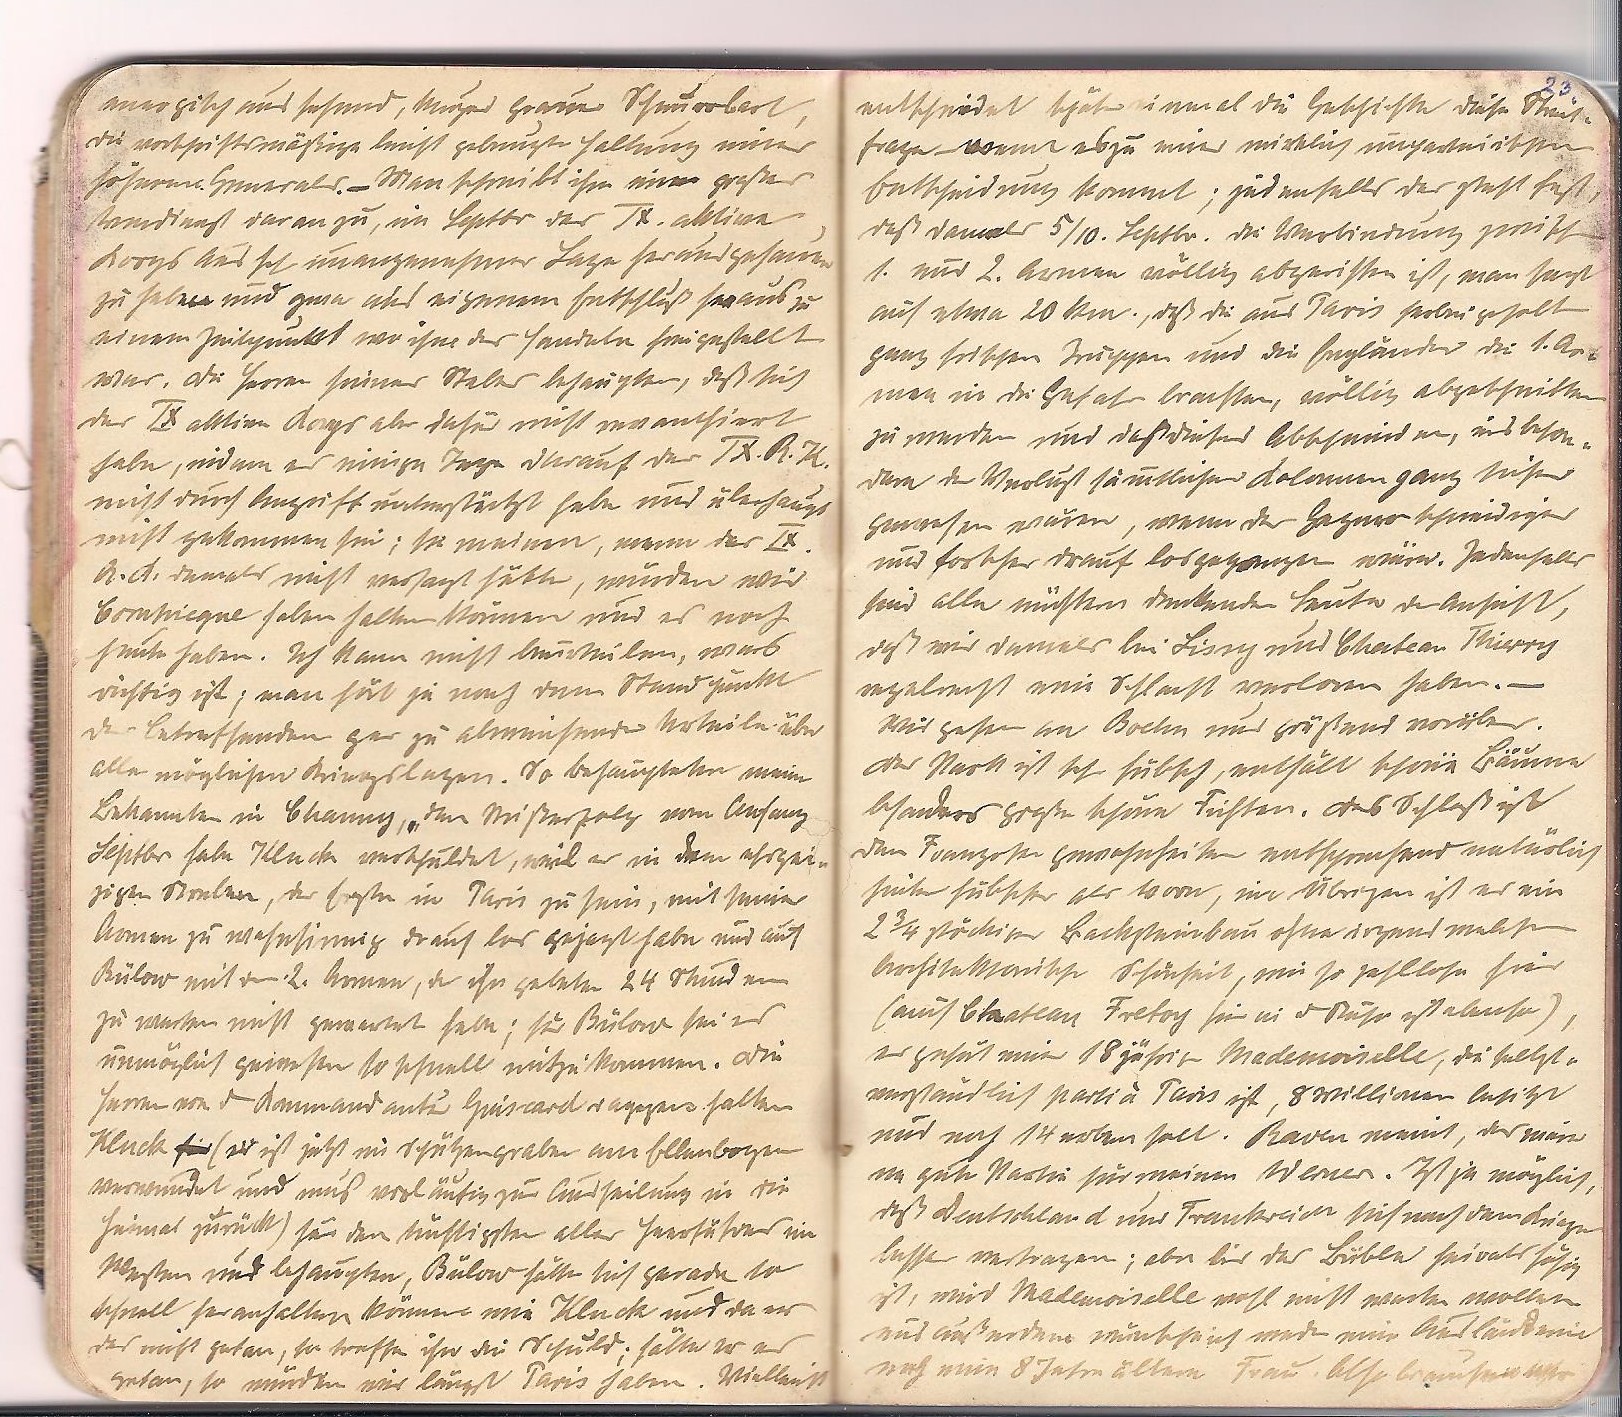 energisch aussehend, kurzer grauer Schnurrbart,
die vorschriftsmäßige leicht gebeugte Haltung eines
höheren Generals. – Man schreibt ihm einen großen
Verdienst daran zu, im Septbr das IX. aktive
Korps aus sehr unangenehmer Lage herausgehauen
zu haben und zwar aus eigenem Entschluß heraus zu
einem Zeitpunkt wo ihm das Handeln freigestellt
war. Die Herren seines Stabes behaupten, daß sich
das IX aktive Korps aber dafür nicht revanchiert
habe, indem es einige Tage darauf das IX. R. K.
nicht durch Angriff unterstützt habe und überhaupt
nicht gekommen sei; sie meinen, wenn das IX.
A. K. damals nicht versagt hätte, würden wir
Compiegne haben halten können und es noch
heute haben. Ich kann nicht beurteilen, was
richtig ist; man hört je nach dem Standpunkt
der Betreffenden gar zu abweichende Urteile über
alle möglichen Kriegslagen. So behaupteten meine
Bekannten in Chauny, den Mißerfolg vom Anfang
Septbr habe Kluck verschuldet, weil er in dem ehrgei-
zigen Streben, der Erste in Paris zu sein, mit seiner
Armee zu wahnsinnig drauf los gejagt habe und auf
Bülow mit der 2. Armee, der ihn gebeten 24 Stunden
zu warten nicht gewartet habe; für Bülow sei es
unmöglich gewesen so schnell mitzukommen. Die
Herren von d Kommandantur Guiscard dagegen halten
Kluck (er ist jetzt im Schützengraben am Ellenbogen
verwundet und muß vorläufig zur Ausheilung in die
Heimat zurück) für den tüchtigsten aller Heerführer im
Westen und behaupten, Bülow hätte sich gerade so
schnell heranhalten können wie Kluck und da er
das nicht getan, so treffe ihn die Schuld; hätte er es
getan, so würden wir längst Paris haben. Vielleicht
23
entscheidet später einmal die Geschichte diese Streit-
frage – wenn es zu einer wirklich
Entscheidung kommt; jedenfalls das steht fest,
daß damals 5/10. Septbr. die Verbindung zwischen
1. und 2. Armee völlig abgerissen ist, man sagt
auf etwa 20 km., daß die aus Paris herbeigeholt
ganz frischen Truppen und die Engländer die 1. Ar-
mee in die Gefahr brachten, völlig abgeschnitten
zu werden und daß dieses Abschneiden, insbeson-
dere der Verlust sämtlicher Kolonnen ganz sicher
gewesen wären, wenn der Gegner schneidiger
und forscher drauf losgegangen wäre. Jedenfalls
sind alle nüchtern denkenden Leute der Ansicht,
daß wir damals bei Lisny und Chateau Thierry
regelrecht eine Schlacht verloren haben. –
Wir gehen an Boehn und grüßend vorüber.
Der Park ist sehr hübsch, enthält schöne Bäume
besonders große schöne Fichten. Das Schloß ist
den Franzosen gewohnheiten entsprechend natürlich
hinten hübscher als vorn, im Übrigen ist es ein
2 3/4 stöckiger Backsteinbau ohne irgend welche
Architektonische Schönheit, wie so zahllose hier
(auch Chateau Fretoy hier in d Nähe ist ebenso),
es gehört einer 18 jährigen Mademoiselle, die selbst-
verständlich partie à Paris ist, 8 Millionen besitzt
und noch 14 erben soll. Raven meint, das wäre
ne gute Partie für meinen Werner. Ist ja möglich,
daß Deutschland und Frankreich sich nach dem Kriege
besser vertragen; aber bis der Bübla heiratsfähig
ist, wird Mademoiselle wohl nicht warten wollen
und außerdem wünsche ich weder eine Ausländerin
noch eine 8 Jahre ältere Frau. Also brauchen wir